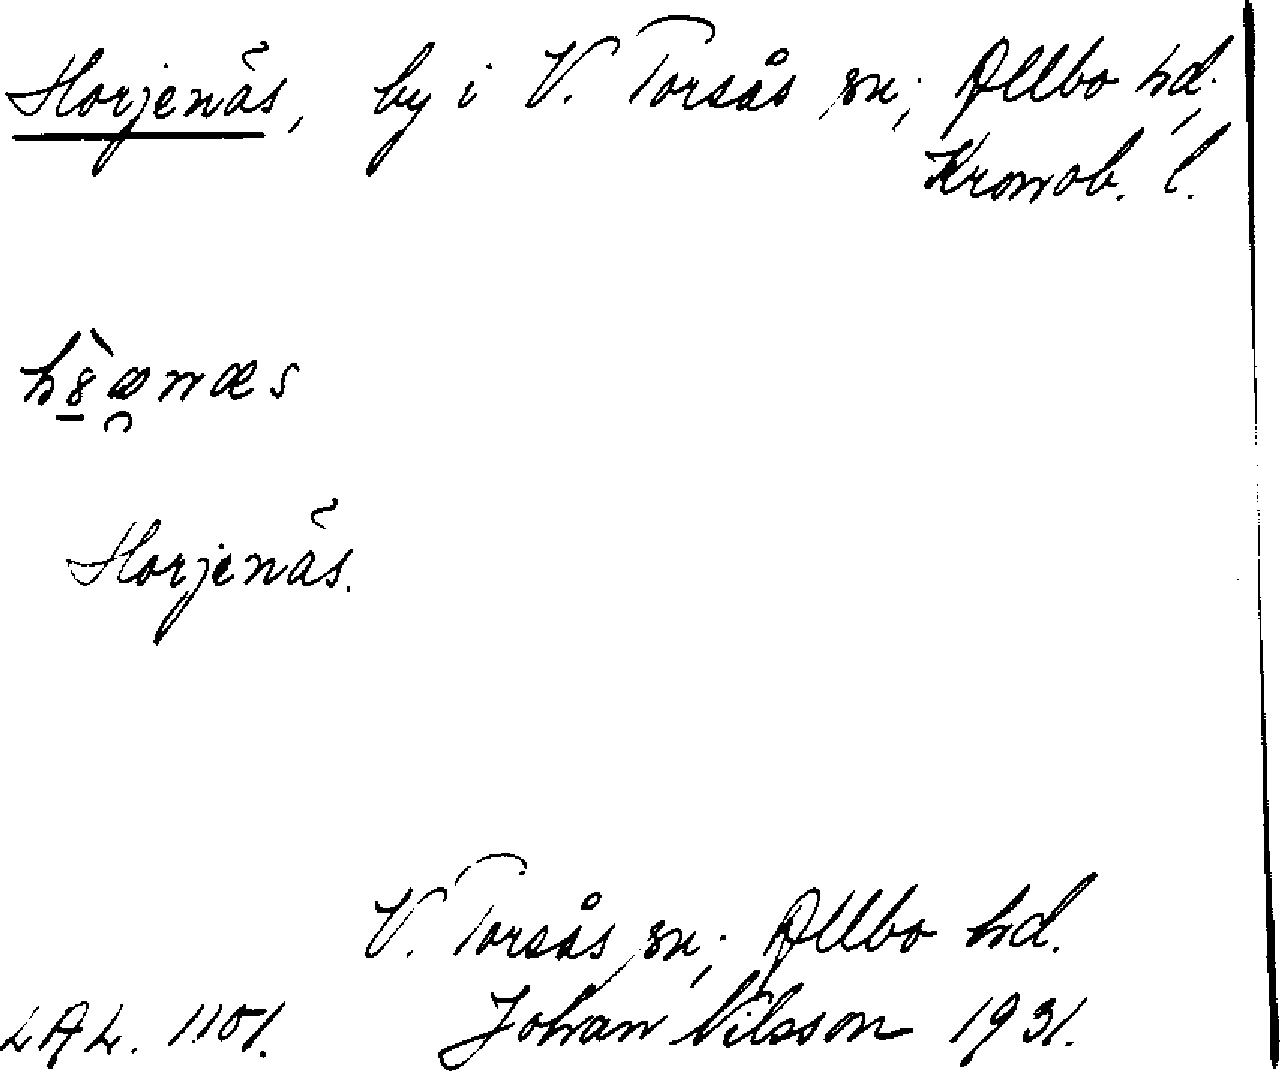 Horjenäs, by i V. Torsås sn; Allbo hd.,
Kronob. l.
Horjenäs.
V. Torsås sn; Allbo hd.
LAL. 1101. Johan Nilsson 1931.